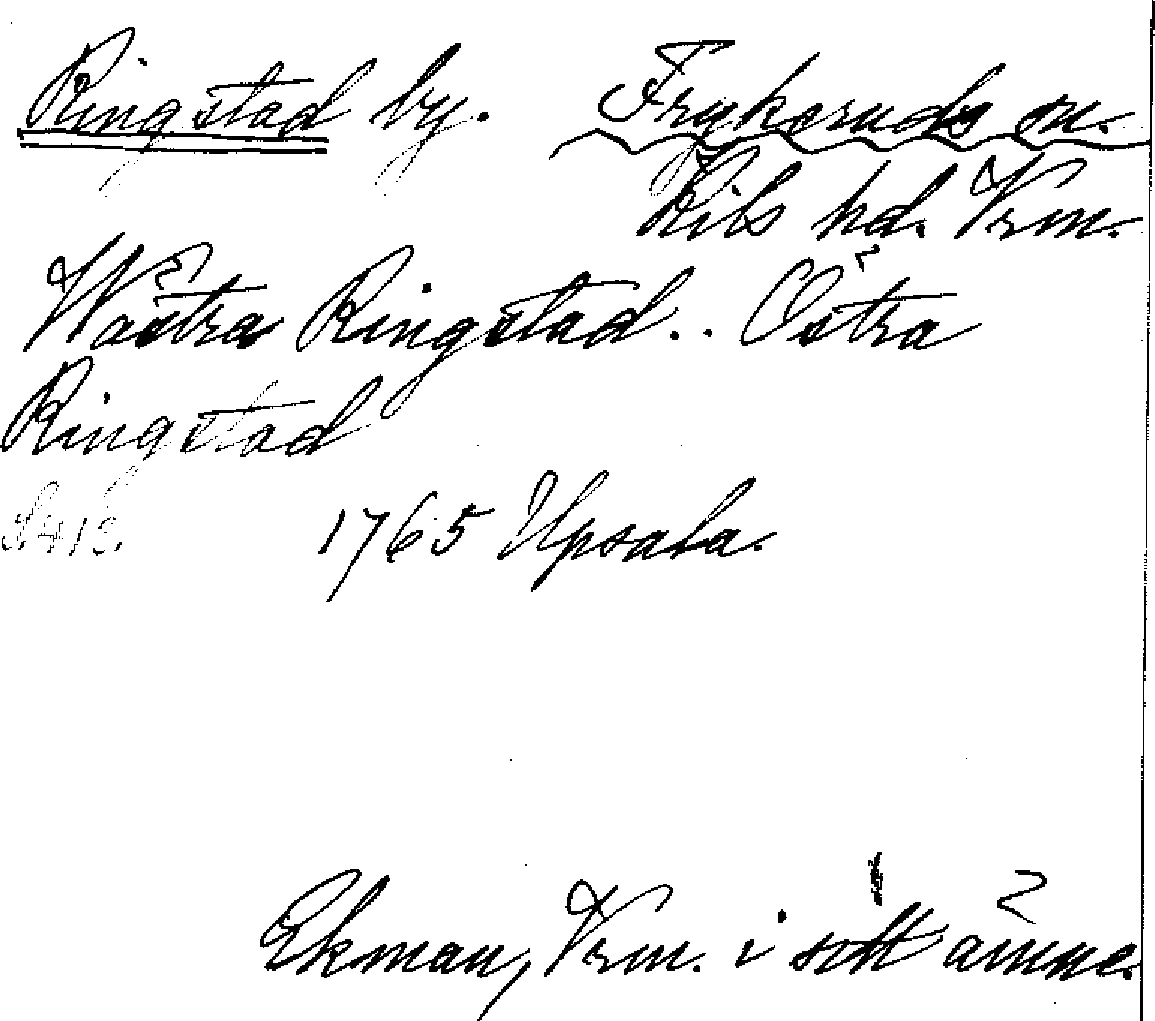 Ringstad by. Frykeruds sn.
Kils hd. Vrm.
Wästra Ringstad.. Östra
Ringstad
S. 413. 1765 Upsala.
Ekman, Vrm. i sitt ämne.